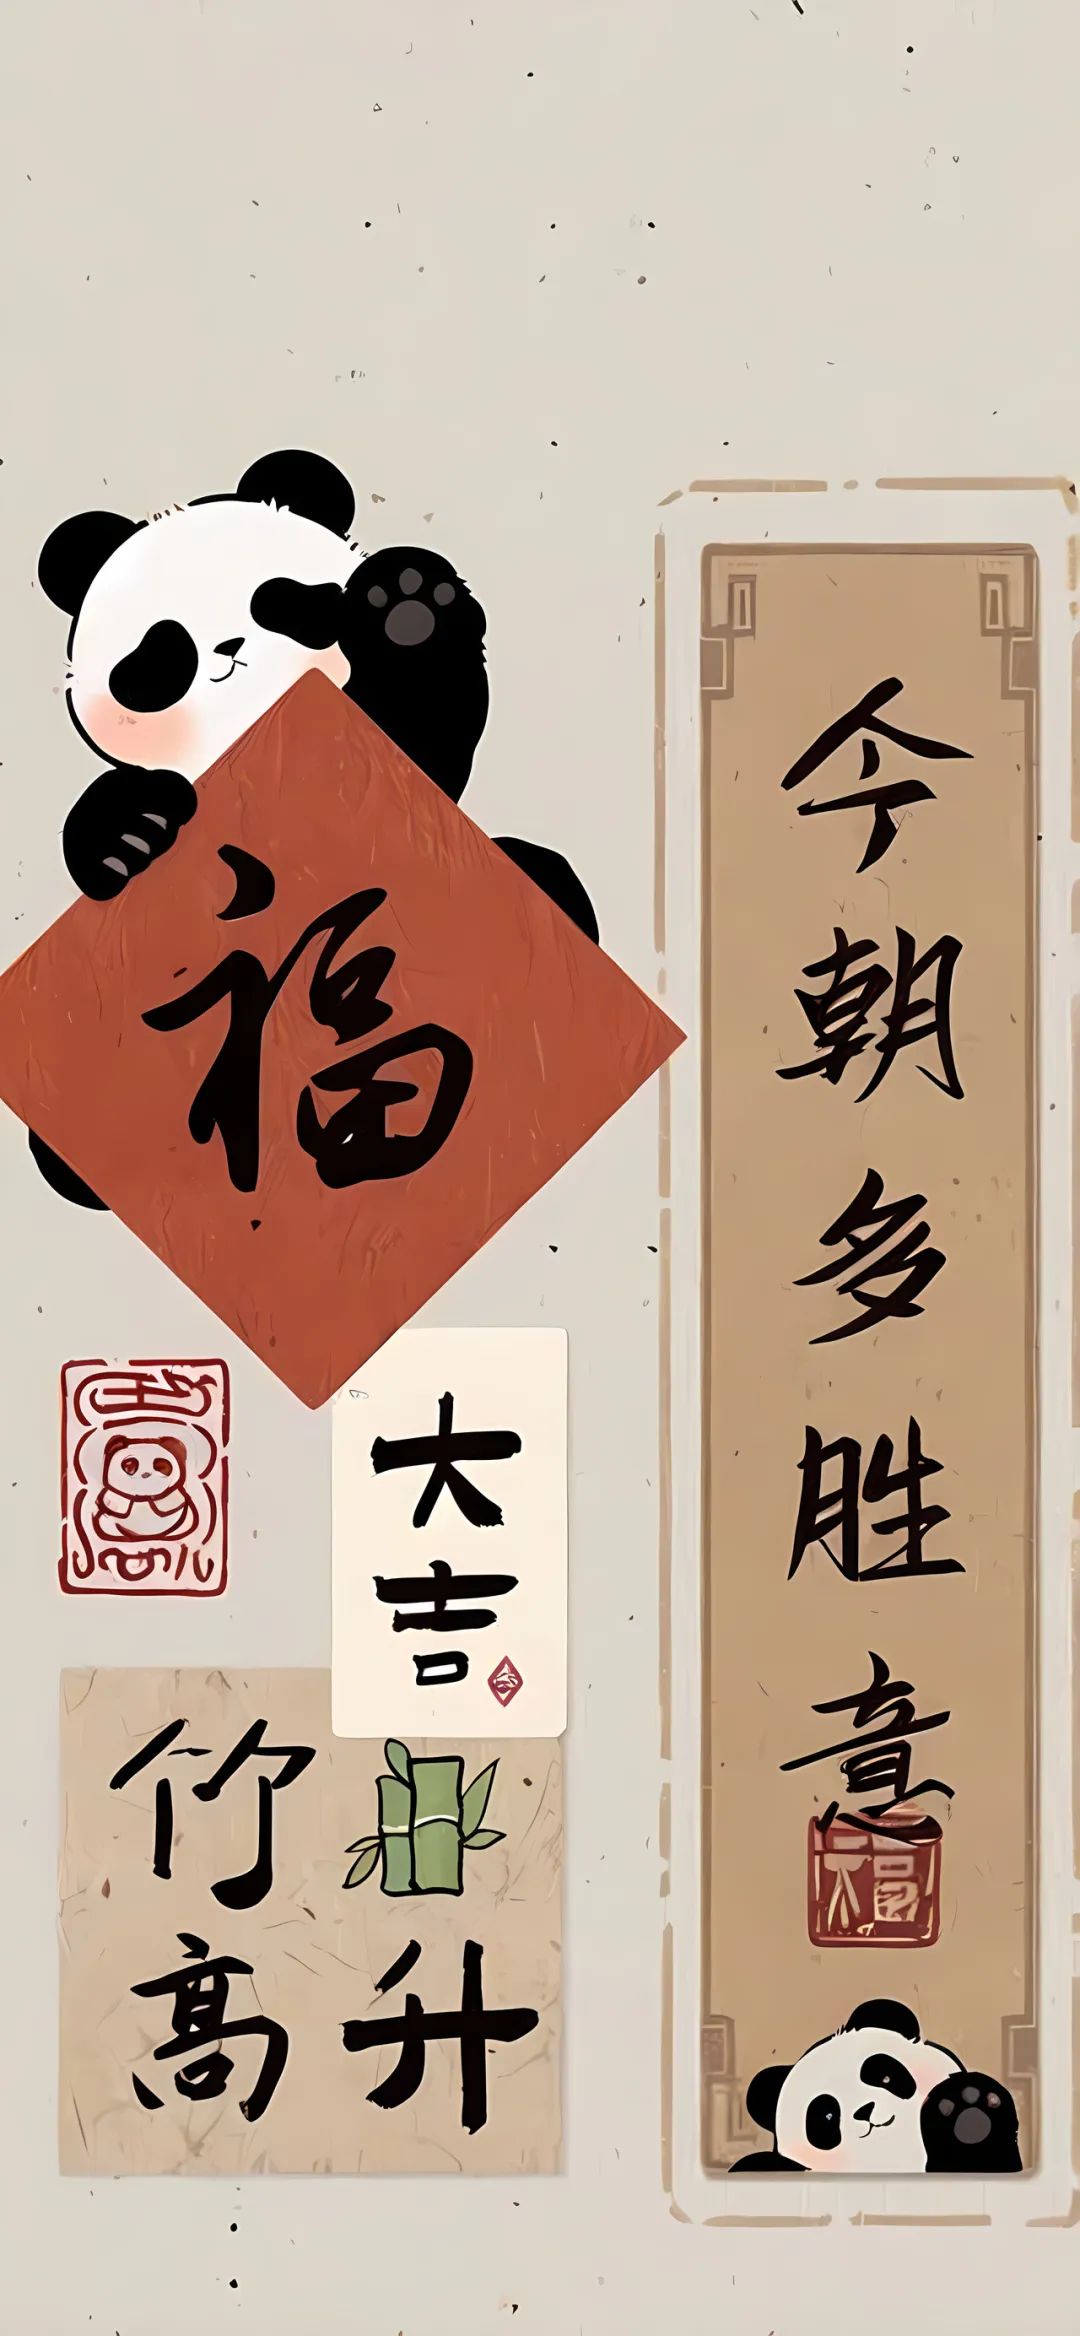 福
大吉
竹
高升
今朝多胜意